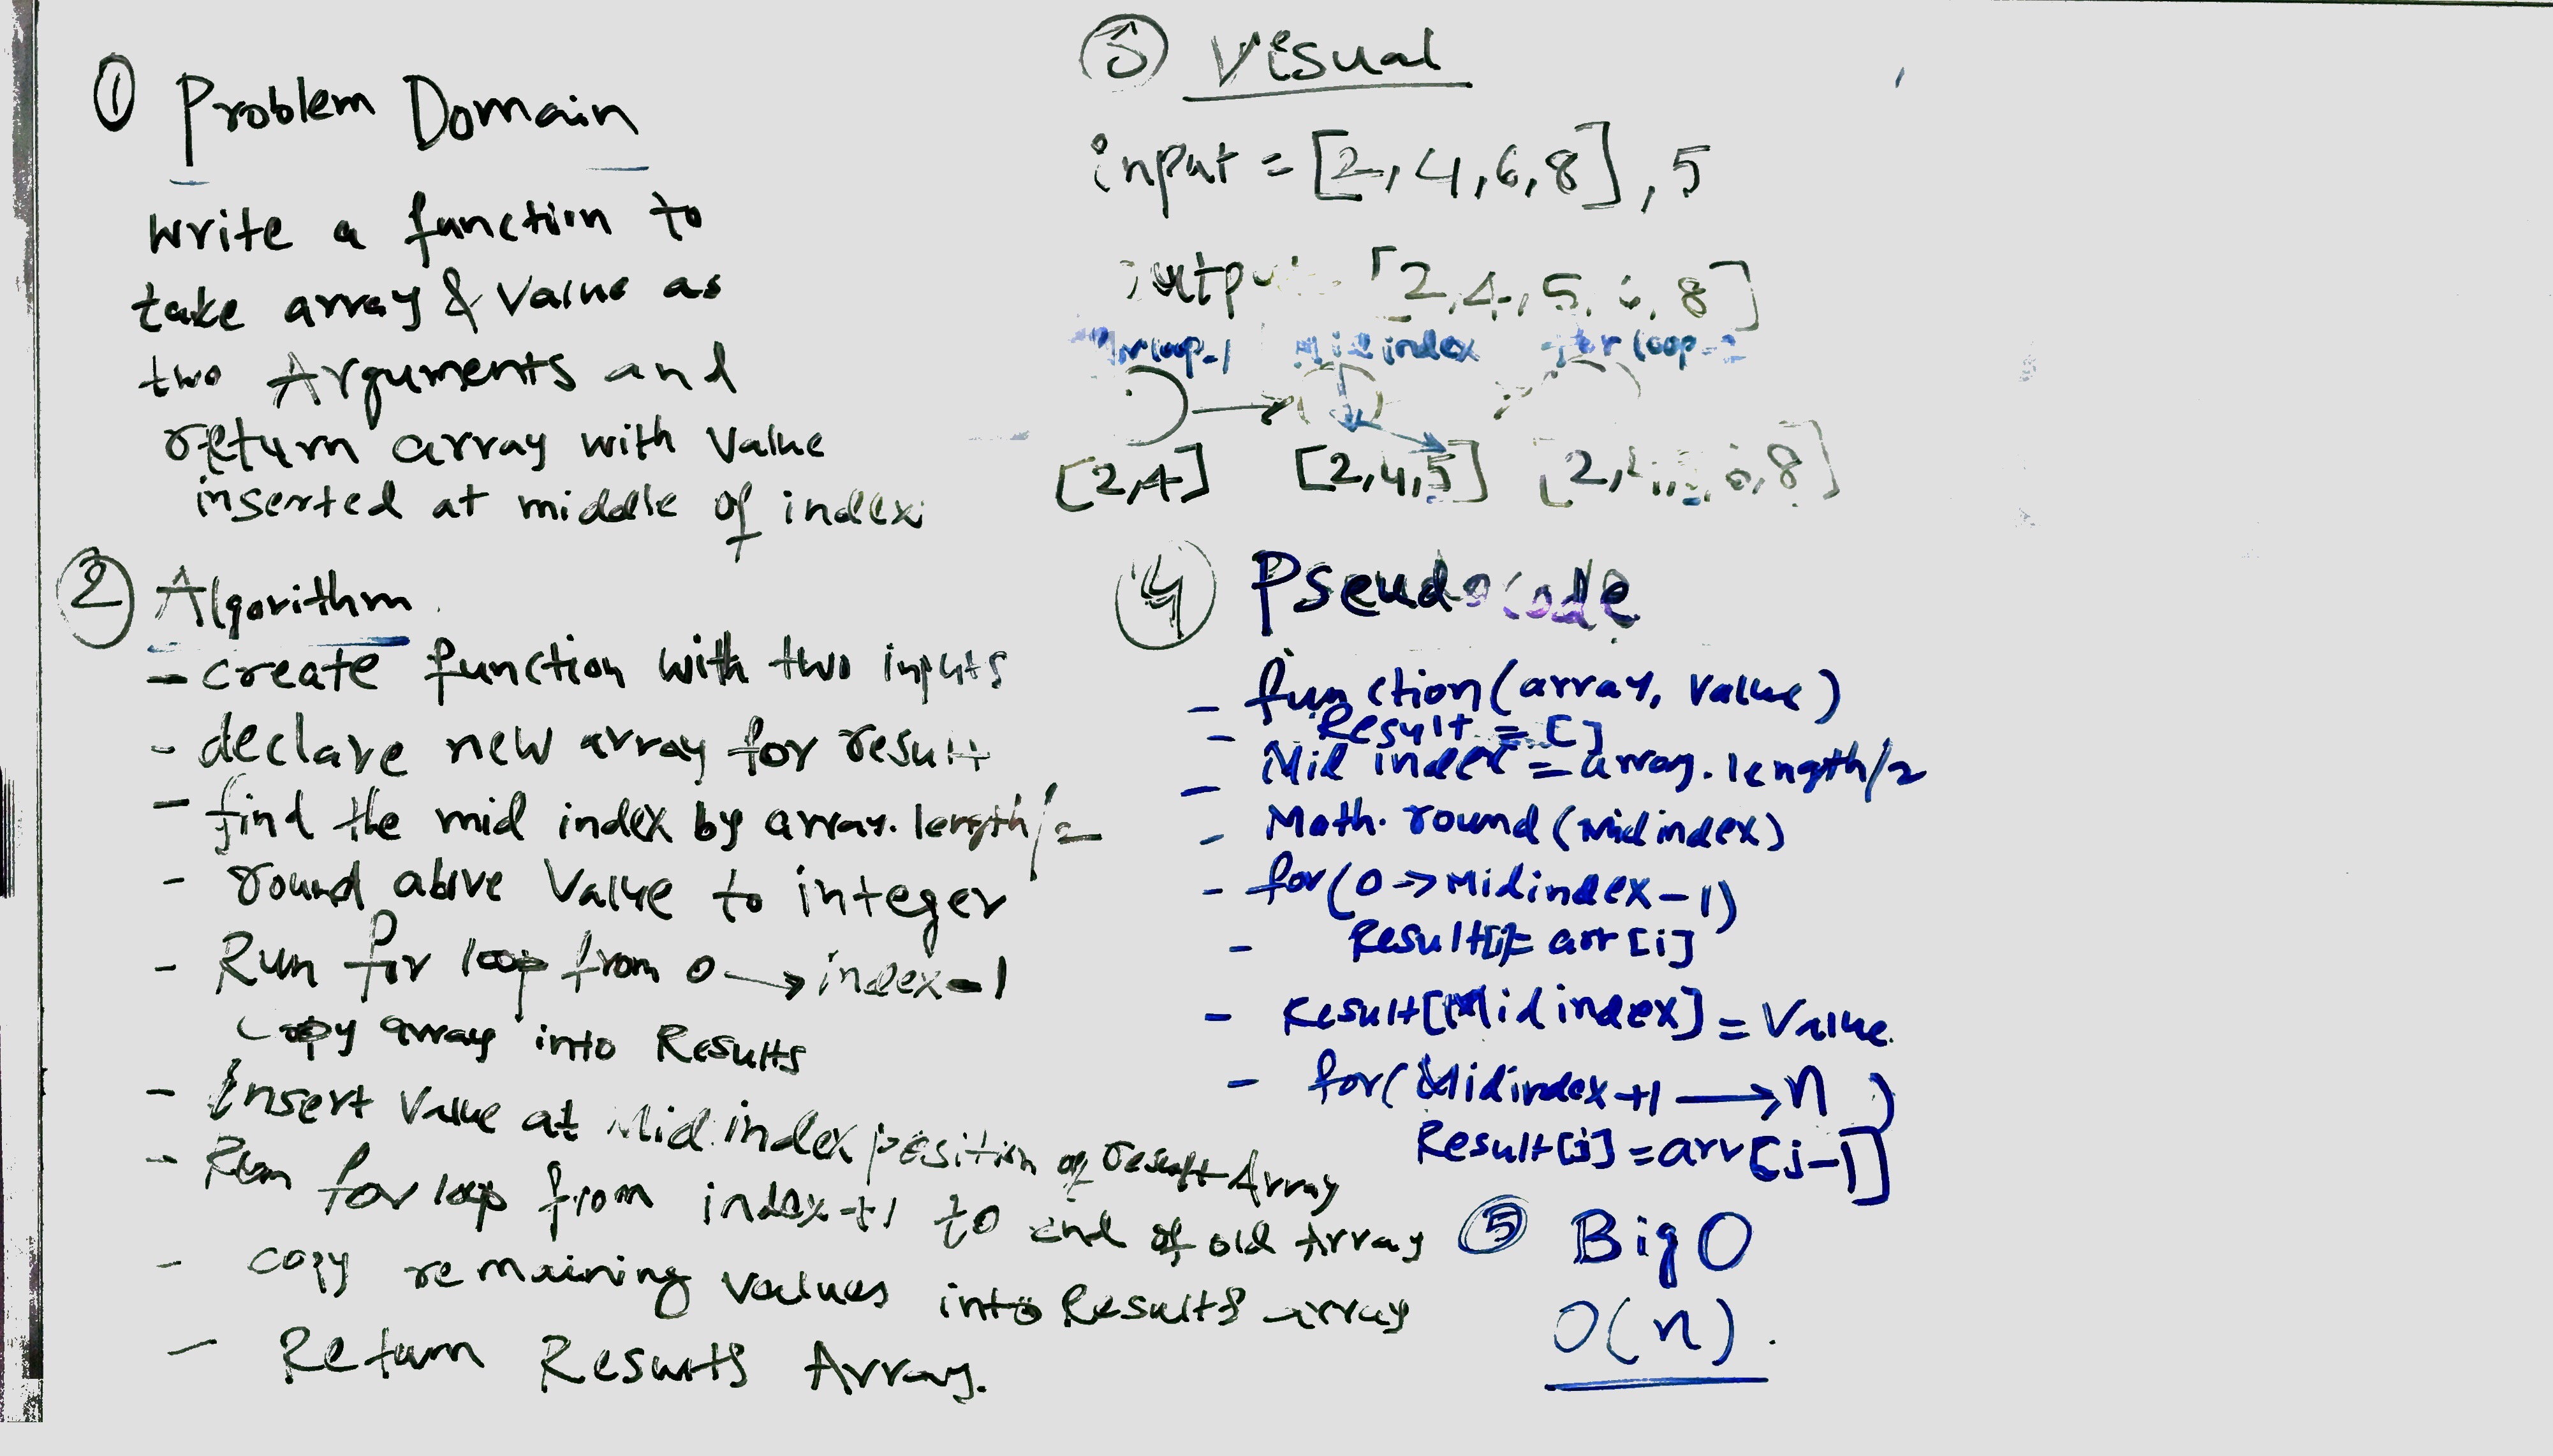 ① Problem Domain
write a function to
take array & Value as
two Arguments and
return array with value
inserted at middle of index.
② Algorithm
- create function with two inputs
- declare new array for result
- find the mid index by array.length/2
- round above Value to integer
- Run for loop from 0 → index-1
copy array into Results
- Insert Value at Mid index position of result Array
- Run for loop from index+1 to end of old Array
- copy remaining values into Results array
- Return Results Array.
③ Visual
input = [2,4,6,8], 5
output = [2,4,5,6,8]
for loop-1 Mid index for loop-2
[2,4] [2,4,5] [2,4,5,6,8]
④ Pseudocode
- function(array, value)
- Result = []
- Mid index = array.length/2
- Math.round(Midindex)
- for(0 → Midindex-1)
- Result[i]= arr[i]
- Result[Midindex] = Value.
- for(Midindex+1 → n)
Result[j] = arr[j-1]
⑤ Big O
O(n).